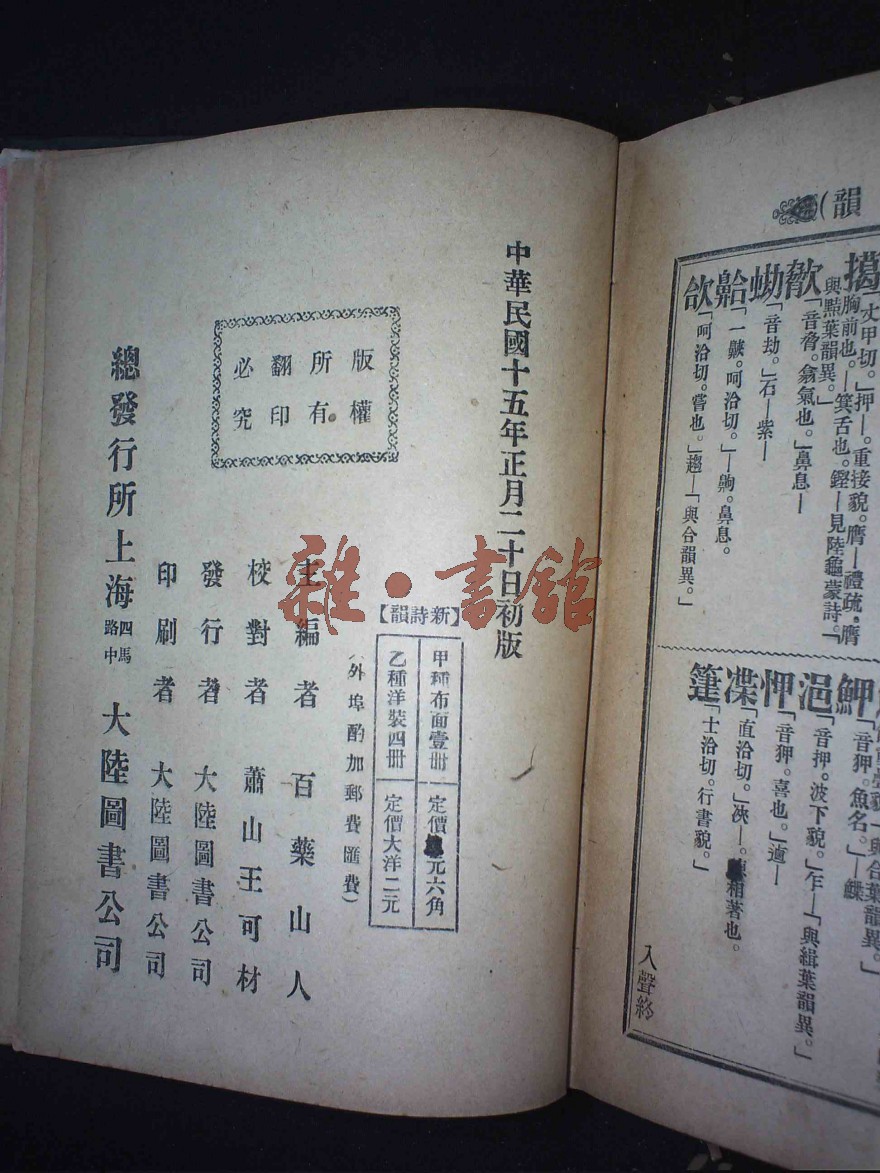 韻)
「丈甲切。」押—。重接貌。膺—禮疏。膺
胸前也。—箕舌也。鏗—見陸龜蒙詩。「
與黠葉韻異。」
歙
「音脅。翕氣也。」鼻息—
蛐
「音劫。」石—紫—
「一䶎。呵洽切。」—齁。鼻息。
欱
「呵洽切。嘗也。」趨—「與合韻異。」
與合葉韻異。」
魻
「音狎。魚名。」—鰈
浥
「音押。波下貌。」乍—「與緝葉韻異。」
㤉
「音狎。喜也。」逌—
渫
「直洽切。」浹—。相著也。
箑
「士洽切。行書貌。」
入聲終
中華民國十五年正月二十日初版
版權
所有
翻印
必究
【新詩韻】
甲種布面壹册 定價元六角
乙種洋裝四冊 定價大洋二元
(外埠酌加郵費匯費)
主編者 百藥山人
校對者 蕭山王可材
發行者 大陸圖書公司
印刷者 大陸圖書公司
總發行所上海四馬路中 大陸圖書公司
雜·書館